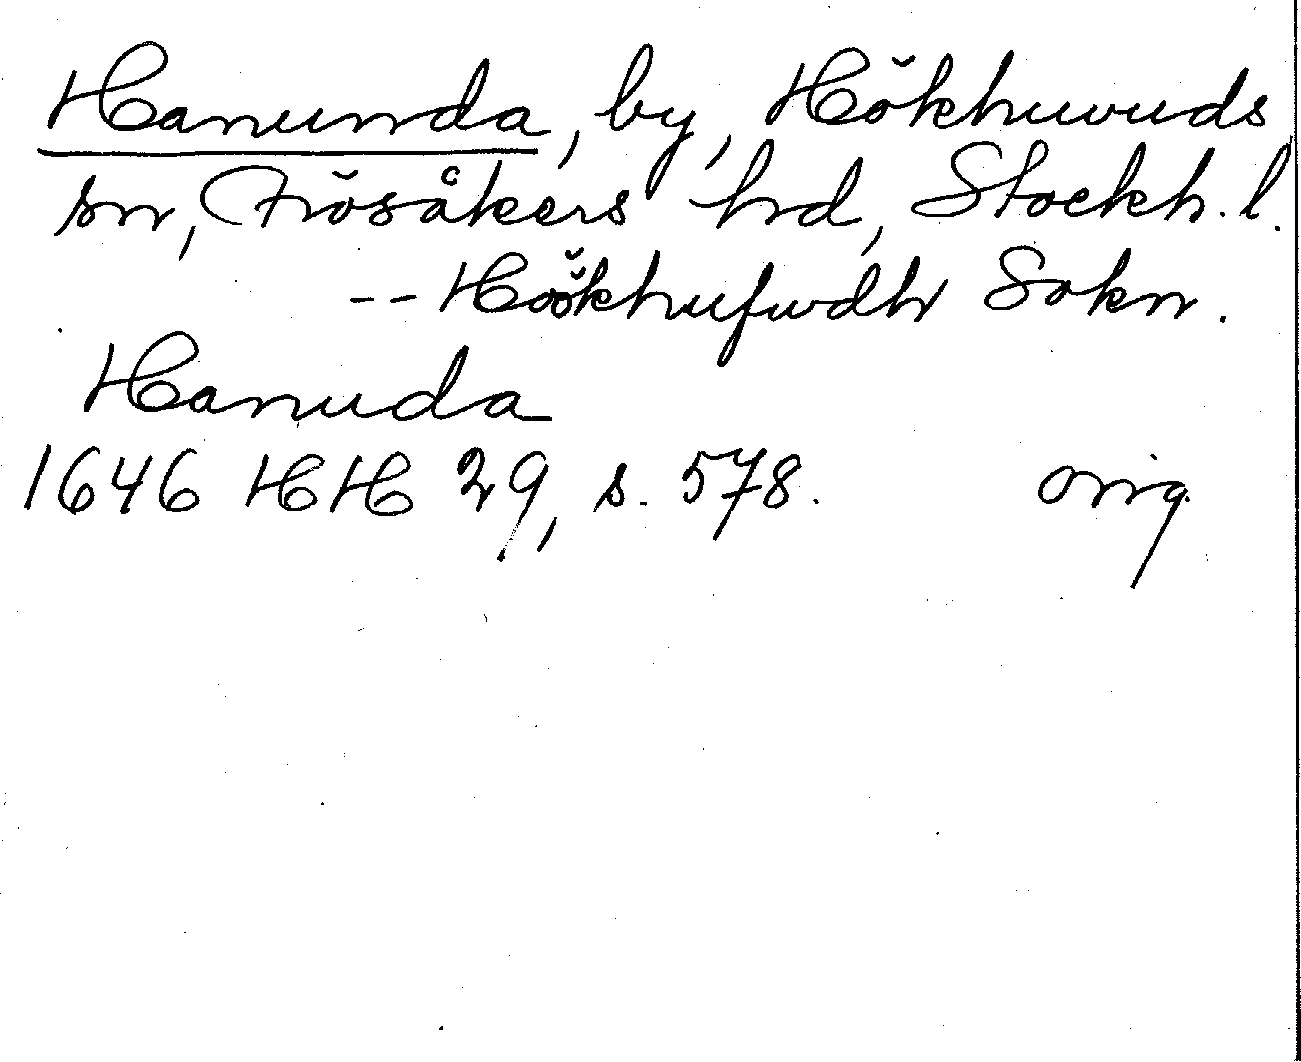 Hanunda, by, Hökhuvuds
sn, Frösåkers hd, Stockh. l.
-- Höökhufwdh Sokn.
Hanuda
1646 HH 29, s. 578. orig.